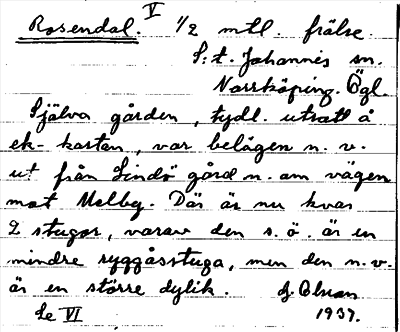 Rosendal. V 1/2 mtl. frälse.
S:t. Johannes sn.
Norrköping. Ögl.
Själva gården, tydl. utsatt å
ek-kartan, var belägen n.v.
ut från Lindö gård n. om vägen
mot Melby. Där är nu kvar
2 stugor, varav den s.ö. är en
mindre ryggåsstuga, men den n.v.
är en större dylik.
Se VI 1937.